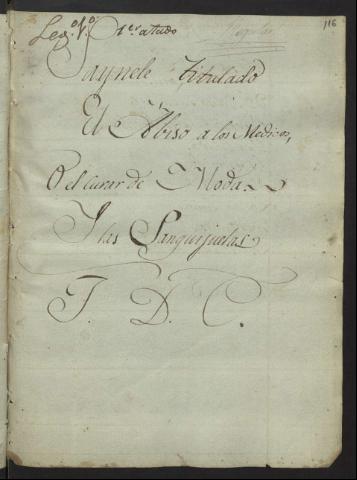 116
Leg.º 1.º 1.er atado
Saynete titulado
El Abiso a los Medicos,
O el curar de Moda
Y las Sanguijuelas
T. D. C.